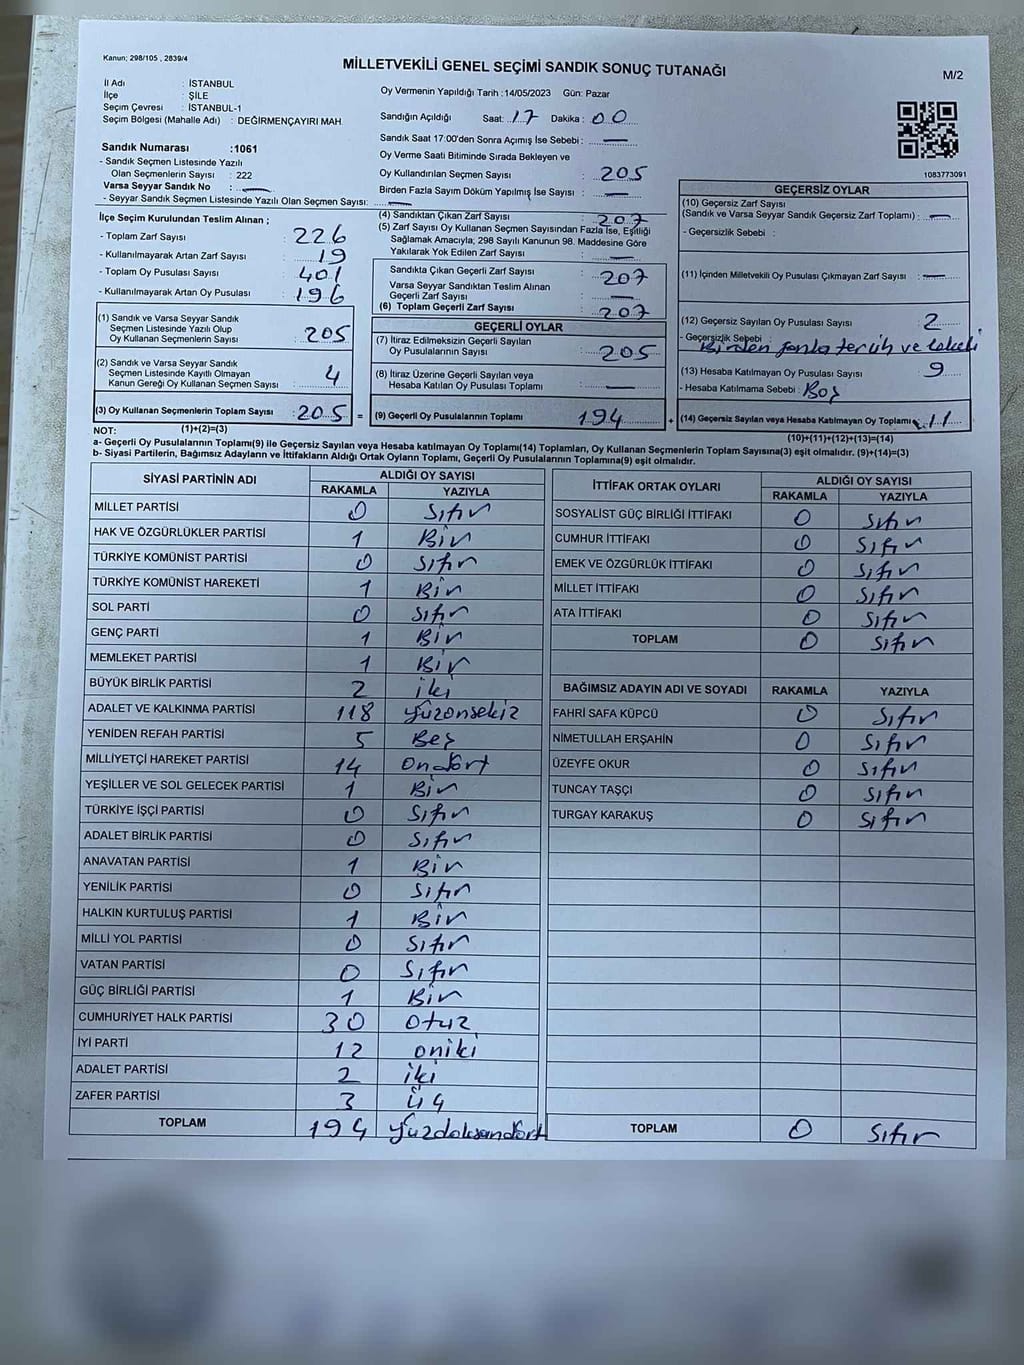 Kanun; 298/105 , 2839/4
MİLLETVEKİLİ GENEL SEÇİMİ SANDIK SONUÇ TUTANAĞI
M/2
İl Adı : İSTANBUL
İlçe : ŞİLE
Seçim Çevresi : İSTANBUL-1
Seçim Bölgesi (Mahalle Adı) : DEĞİRMENÇAYIRI MAH.
Oy Vermenin Yapıldığı Tarih :14/05/2023 Gün: Pazar
Sandığın Açıldığı Saat: 17 Dakika : 00
Sandık Saat 17:00'den Sonra Açımış İse Sebebi : —
Oy Verme Saati Bitiminde Sırada Bekleyen ve
Oy Kullandırılan Seçmen Sayısı : 205
Birden Fazla Sayım Döküm Yapılmış İse Sayısı : —
1083773091
Sandık Numarası :1061
- Sandık Seçmen Listesinde Yazılı
Olan Seçmenlerin Sayısı : 222
Varsa Seyyar Sandık No : —
- Seyyar Sandık Seçmen Listesinde Yazılı Olan Seçmen Sayısı: —
İlçe Seçim Kurulundan Teslim Alınan ;
- Toplam Zarf Sayısı : 226
- Kullanılmayarak Artan Zarf Sayısı : 19
- Toplam Oy Pusulası Sayısı : 401
- Kullanılmayarak Artan Oy Pusulası : 196
(1) Sandık ve Varsa Seyyar Sandık
Seçmen Listesinde Yazılı Olup
Oy Kullanan Seçmenlerin Sayısı : 205
(2) Sandık ve Varsa Seyyar Sandık
Seçmen Listesinde Kayıtlı Olmayan
Kanun Gereği Oy Kullanan Seçmen Sayısı : 4
(3) Oy Kullanan Seçmenlerin Toplam Sayısı : 205 =
(4) Sandıktan Çıkan Zarf Sayısı : 207
(5) Zarf Sayısı Oy Kullanan Seçmen Sayısından Fazla İse, Eşitliği
Sağlamak Amacıyla; 298 Sayılı Kanunun 98. Maddesine Göre
Yakılarak Yok Edilen Zarf Sayısı : —
Sandıkta Çıkan Geçerli Zarf Sayısı : 207
Varsa Seyyar Sandıktan Teslim Alınan
Geçerli Zarf Sayısı : —
(6) Toplam Geçerli Zarf Sayısı : 207
GEÇERLİ OYLAR
(7) İtiraz Edilmeksizin Geçerli Sayılan
Oy Pusulalarının Sayısı : 205
(8) İtiraz Üzerine Geçerli Sayılan veya
Hesaba Katılan Oy Pusulası Toplamı : —
(9) Geçerli Oy Pusulalarının Toplamı : 194 +
GEÇERSİZ OYLAR
(10) Geçersiz Zarf Sayısı
(Sandık ve Varsa Seyyar Sandık Geçersiz Zarf Toplamı) : —
- Geçersizlik Sebebi :
(11) İçinden Milletvekili Oy Pusulası Çıkmayan Zarf Sayısı : —
(12) Geçersiz Sayılan Oy Pusulası Sayısı : 2
- Geçersizlik Sebebi : Birden fazla tercih ve lekeli
(13) Hesaba Katılmayan Oy Pusulası Sayısı : 9
- Hesaba Katılmama Sebebi : Boş
(14) Geçersiz Sayılan veya Hesaba Katılmayan Oy Toplamı : 11
NOT: (1)+(2)=(3)
(10)+(11)+(12)+(13)=(14)
a- Geçerli Oy Pusulalarının Toplamı(9) ile Geçersiz Sayılan veya Hesaba katılmayan Oy Toplamı(14) Toplamları, Oy Kullanan Seçmenlerin Toplam Sayısına(3) eşit olmalıdır. (9)+(14)=(3)
b- Siyasi Partilerin, Bağımsız Adayların ve İttifakların Aldığı Ortak Oyların Toplamı, Geçerli Oy Pusulalarının Toplamına(9) eşit olmalıdır.
SİYASİ PARTİNİN ADI ALDIĞI OY SAYISI
RAKAMLA YAZIYLA
MİLLET PARTİSİ 0 Sıfır
HAK VE ÖZGÜRLÜKLER PARTİSİ 1 Bir
TÜRKİYE KOMÜNİST PARTİSİ 0 Sıfır
TÜRKİYE KOMÜNİST HAREKETİ 1 Bir
SOL PARTİ 0 Sıfır
GENÇ PARTİ 1 Bir
MEMLEKET PARTİSİ 1 Bir
BÜYÜK BİRLİK PARTİSİ 2 iki
ADALET VE KALKINMA PARTİSİ 118 yüzonsekiz
YENİDEN REFAH PARTİSİ 5 Beş
MİLLİYETÇİ HAREKET PARTİSİ 14 Ondört
YEŞİLLER VE SOL GELECEK PARTİSİ 1 Bir
TÜRKİYE İŞÇİ PARTİSİ 0 Sıfır
ADALET BİRLİK PARTİSİ 0 Sıfır
ANAVATAN PARTİSİ 1 Bir
YENİLİK PARTİSİ 0 Sıfır
HALKIN KURTULUŞ PARTİSİ 1 Bir
MİLLİ YOL PARTİSİ 0 Sıfır
VATAN PARTİSİ 0 Sıfır
GÜÇ BİRLİĞİ PARTİSİ 1 Bir
CUMHURİYET HALK PARTİSİ 30 Otuz
İYİ PARTİ 12 oniki
ADALET PARTİSİ 2 iki
ZAFER PARTİSİ 3 üç
TOPLAM 194 yüzdoksandört
İTTİFAK ORTAK OYLARI ALDIĞI OY SAYISI
RAKAMLA YAZIYLA
SOSYALİST GÜÇ BİRLİĞİ İTTİFAKI 0 Sıfır
CUMHUR İTTİFAKI 0 Sıfır
EMEK VE ÖZGÜRLÜK İTTİFAKI 0 Sıfır
MİLLET İTTİFAKI 0 Sıfır
ATA İTTİFAKI 0 Sıfır
TOPLAM 0 Sıfır
BAĞIMSIZ ADAYIN ADI VE SOYADI RAKAMLA YAZIYLA
FAHRİ SAFA KÜPCÜ 0 Sıfır
NİMETULLAH ERŞAHİN 0 Sıfır
ÜZEYFE OKUR 0 Sıfır
TUNCAY TAŞÇI 0 Sıfır
TURGAY KARAKUŞ 0 Sıfır
TOPLAM 0 Sıfır